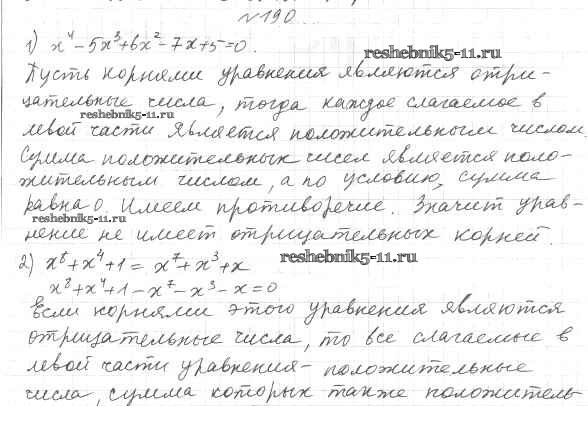 №190.
1) x⁴ – 5x³ + 6x² – 7x + 5 = 0.
reshebnik5-11.ru
Пусть корнями уравнения являются отри-
цательные числа, тогда каждое слагаемое в
reshebnik5-11.ru
левой части является положительным числом.
Сумма положительных чисел является поло-
жительным числом, а по условию, сумма
равна 0. Имеем противоречие. Значит урав-
reshebnik5-11.ru
нение не имеет отрицательных корней.
2) x⁸ + x⁴ + 1 = x⁷ + x³ + x
reshebnik5-11.ru
x⁸ + x⁴ + 1 – x⁷ – x³ – x = 0
Если корнями этого уравнения являются
отрицательные числа, то все слагаемые в
левой части уравнения – положительные
числа, сумма которых также положитель-